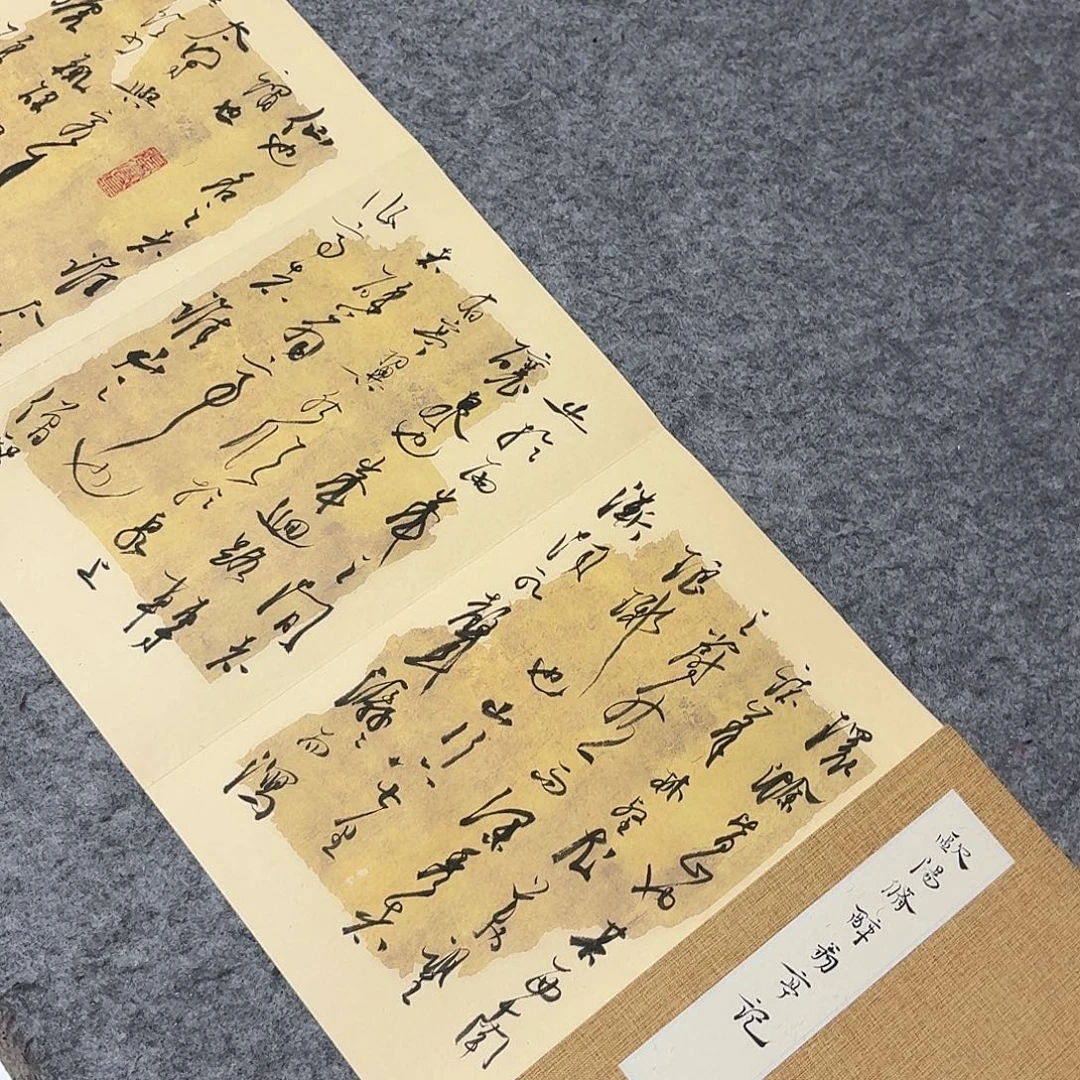 歐陽脩醉翁亭記
環滁皆山也其西南
諸峯林壑尤美望
之蔚然而深秀者
琅琊也山行六七里
漸聞水聲潺々而瀉
出於兩峯之間者
釀泉也峯迴路轉
有亭翼然臨於泉上
者醉翁亭也
作亭者誰山之僧智
仙也名之者誰太
謂也
太守與